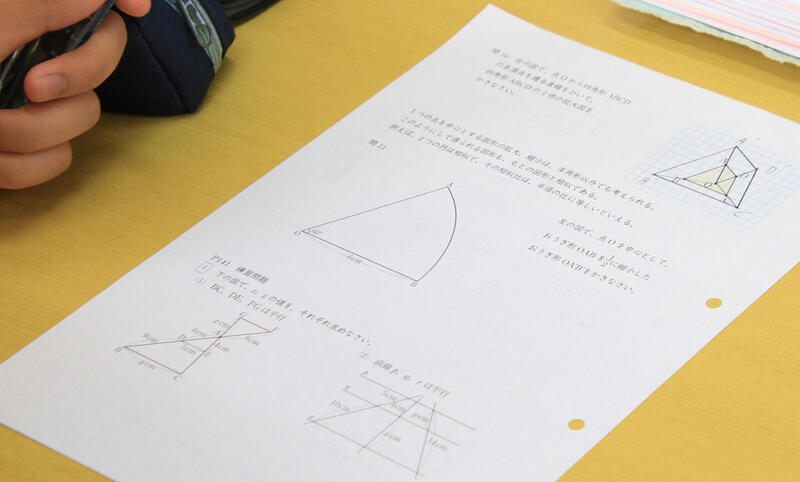 問10 右の図で、点Oから四角形ABCD
の各頂点を通る直線をひいて、
四角形ABCDの2倍の拡大図を
かきなさい。
A'
A
B'
B
D
D'
O
C
C'
1つの点を中心とする図形の拡大、縮小は、多角形以外でも考えられる。
このようにして得られる図形も、もとの図形と相似である。
例えば、2つの円は相似で、その相似比は、半径の比に等しいといえる。
問11
左の図で、点Oを中心として、
おうぎ形OABを1/2に縮小した
おうぎ形OA'B'をかきなさい。
A
O
60°
6cm
B
P141 練習問題
1 下の図で、x、yの値を、それぞれ求めなさい。
(1) BC、DE、FGは平行
G
F
xcm
8cm
A
6cm
4cm
9cm
D
E
5cm
B
ycm
C
(2) 直線p、q、rは平行
p
5cm
q
4cm
ycm
10cm
xcm
14cm
r